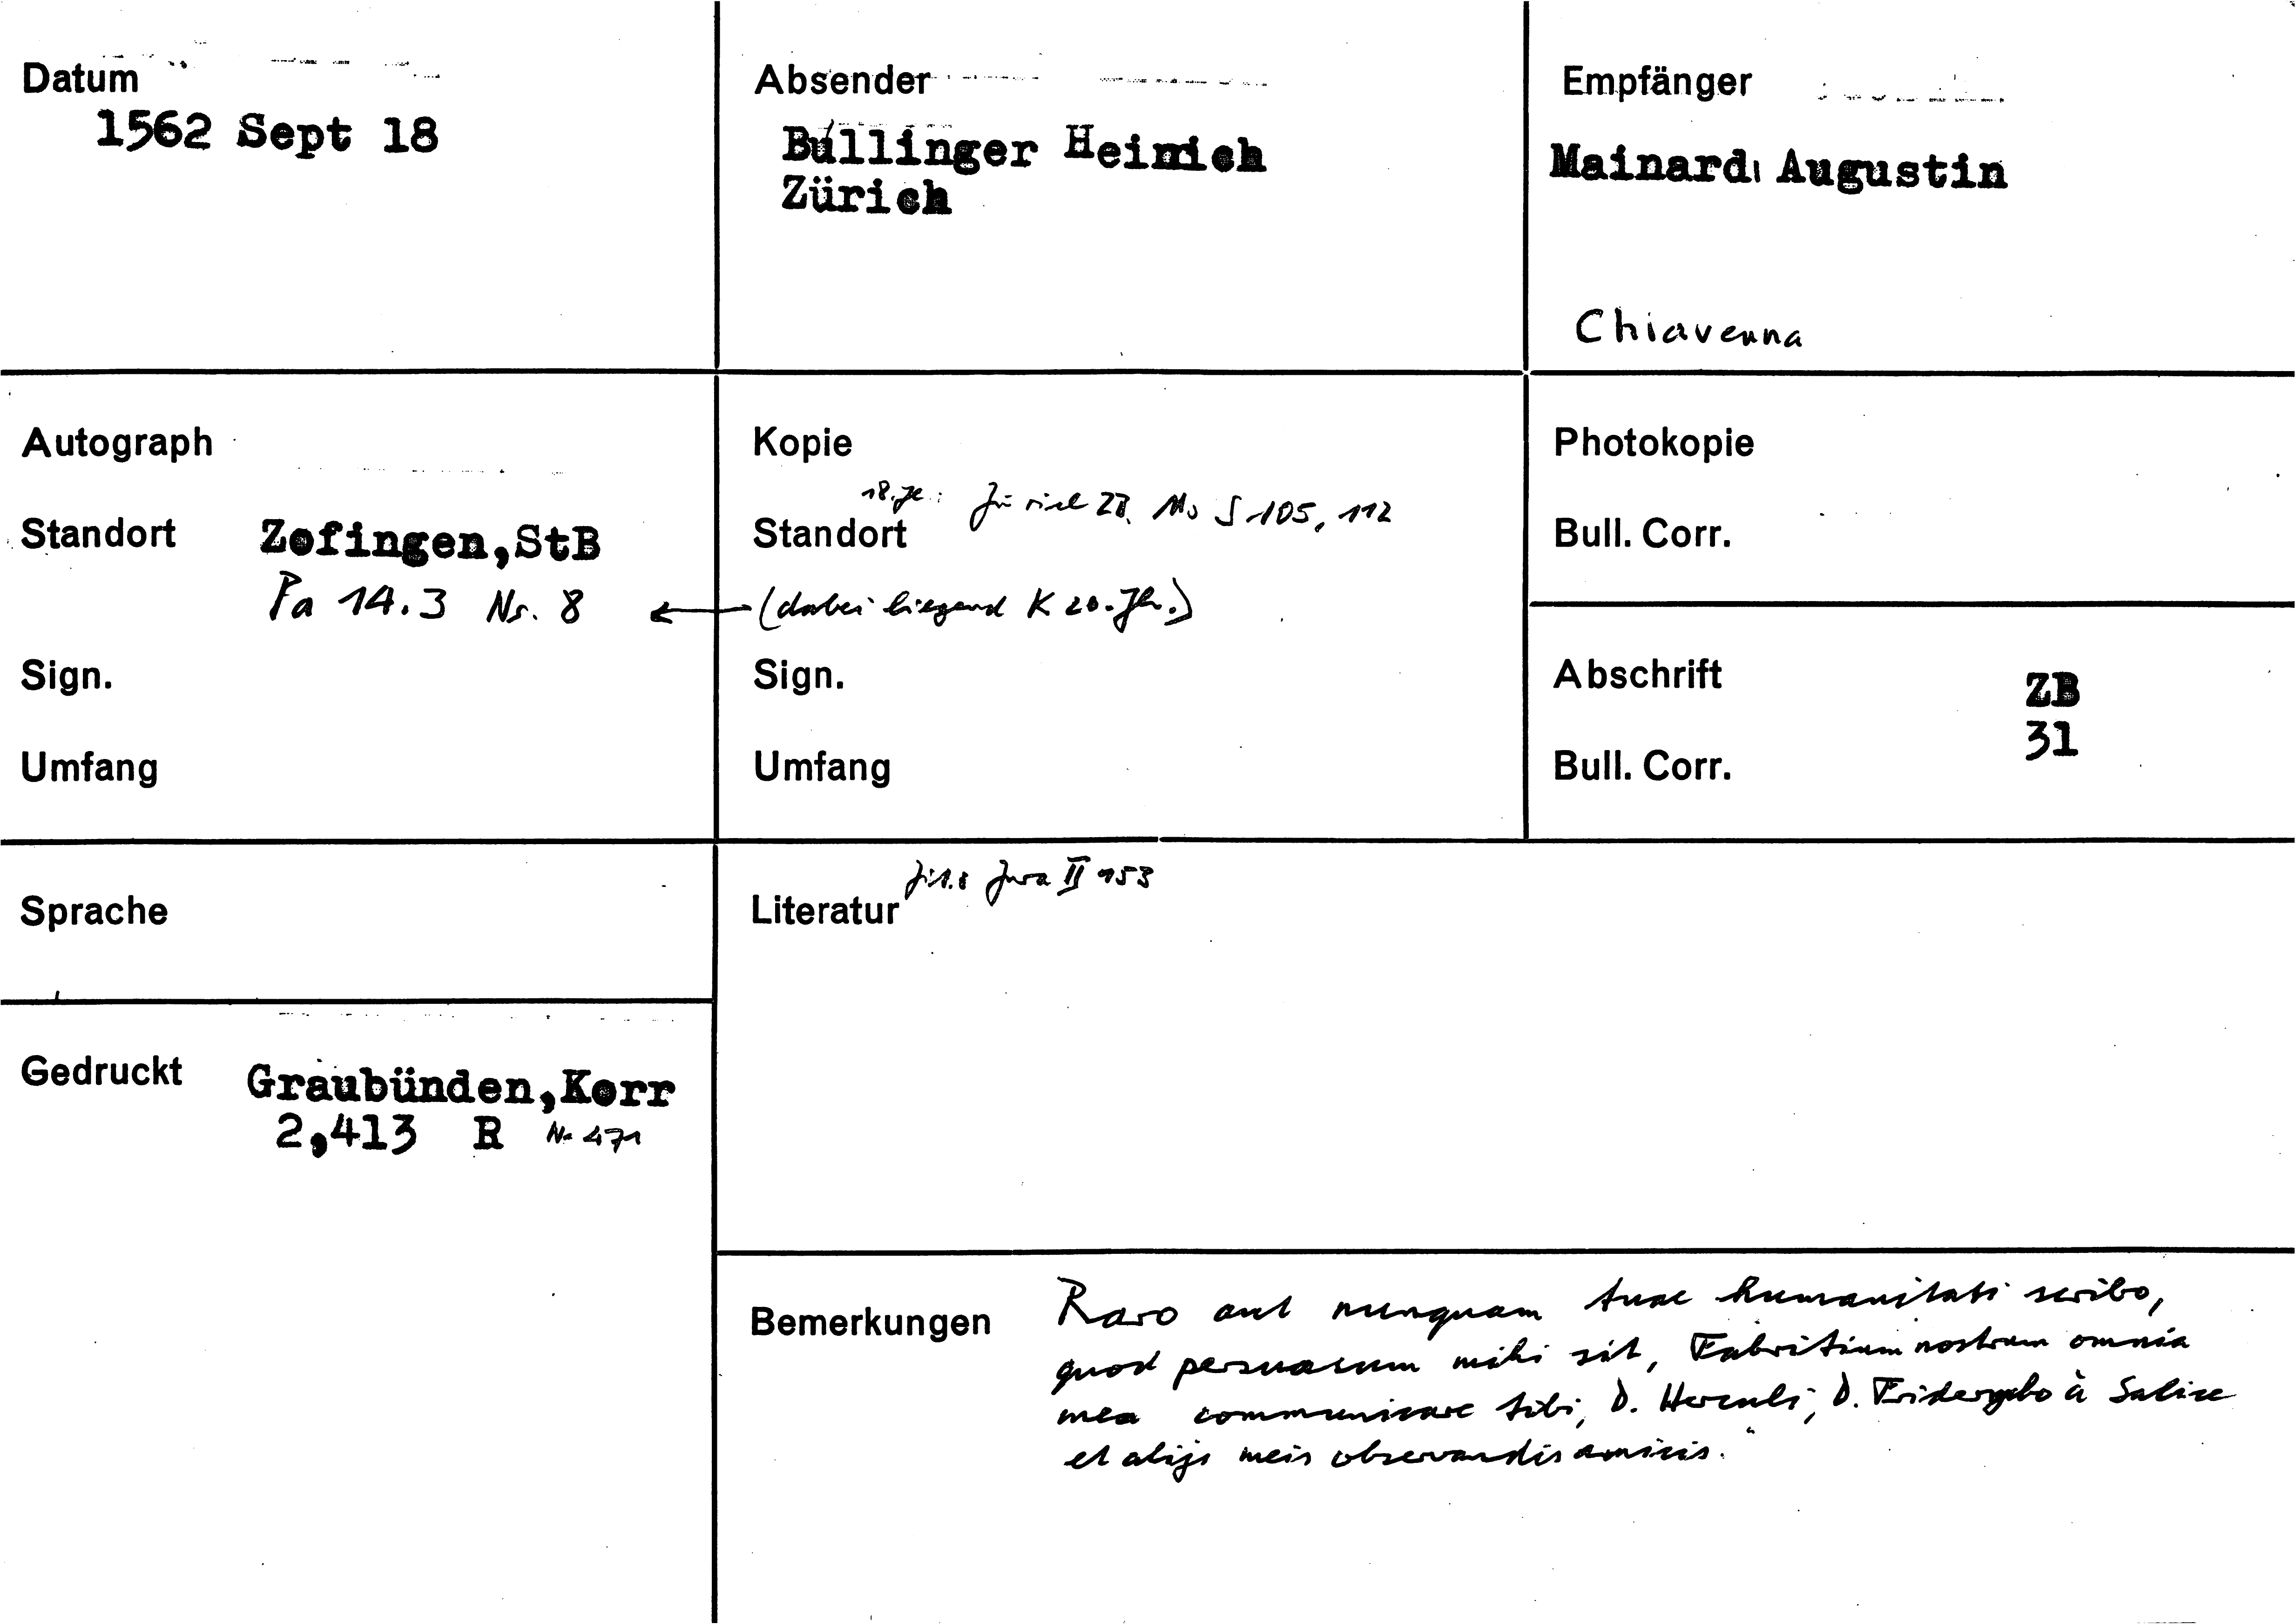 Datum
1562 Sept 18
Absender
Bullinger Heinrich
Zürich
Empfänger
Mainardi Augustin
Chiavenna
Autograph
Standort Zofingen, StB
Pa 14.3 Nr. 8
Sign.
Umfang
Kopie
18. Jh.: Zürich ZB, Ms S 105, 112
Standort
(dabei liegend K 20. Jh.)
Sign.
Umfang
Photokopie
Bull. Corr.
Abschrift ZB
31
Bull. Corr.
Sprache
Jura II 153
Literatur
Gedruckt Graubünden, Korr
2,413 R Nr 471
Bemerkungen Raro aut nunquam tuae humanitati scribo,
quod persuasum mihi sit, Fabritium nostrum omnia
mea communicare tibi, D. Herculi, D. Friderycho à Salice
et alijs meis observandis amicis."